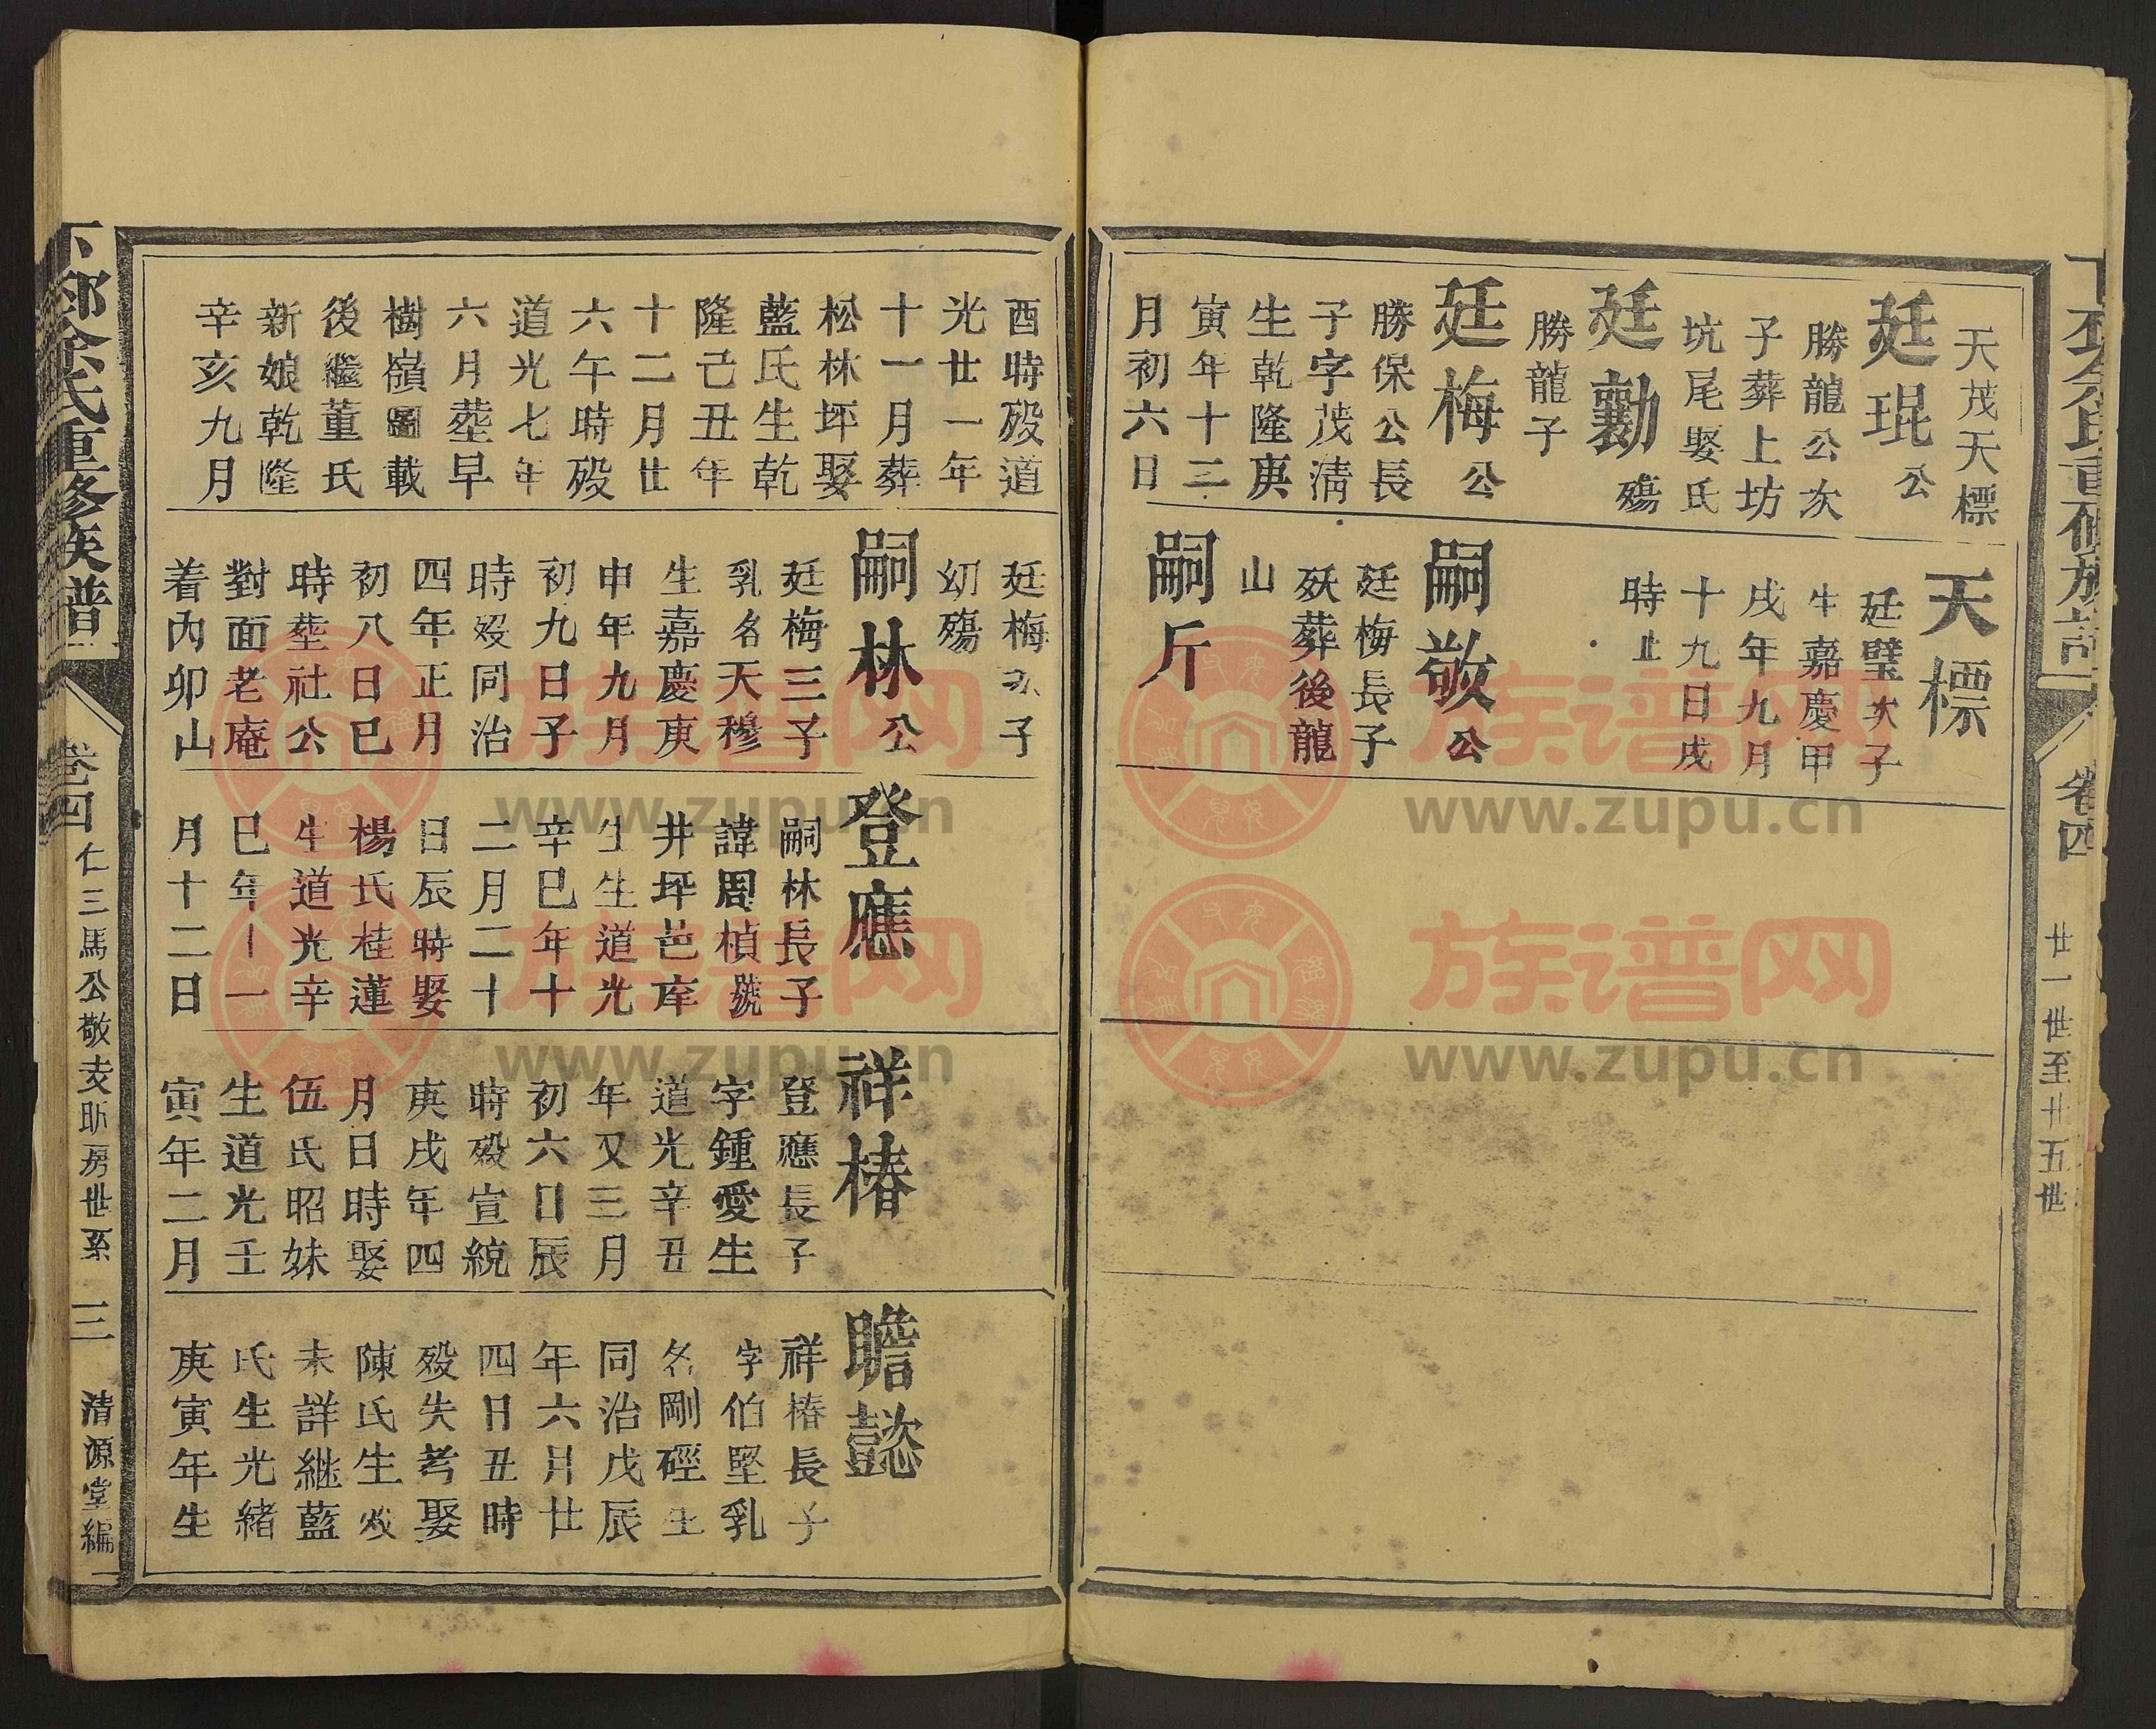 天茂天標
廷琨公
勝龍公次
子葬上坊
坑尾娶氏
廷勷殤
勝龍子
廷梅公
勝保公長
子字茂清
生乾隆庚
寅年十三
月初六日
天標
廷璧次子
生嘉慶甲
戌年九月
十九日戌
時止
嗣敬公
廷梅長子
殀葬後龍
山
嗣斤
卷四
廿一世至廿五世
酉時殁道
光廿一年
十一月葬
松林坪娶
藍氏生乾
隆己丑年
十二月廿
六午時殁
道光七年
六月塟早
樹嶺圖載
後繼董氏
新娘乾隆
辛亥九月
廷梅次子
幼殤
嗣林公
廷梅三子
乳名天穆
生嘉慶庚
申年九月
初九日子
時殁同治
四年正月
初八日巳
時塟社公
對面老庵
着內卯山
登應
嗣林長子
諱周楨號
井坪邑庠
生生道光
辛巳年十
二月二十
日辰時娶
楊氏桂蓮
生道光辛
巳年十一
月十二日
祥椿
登應長子
字鍾愛生
道光辛丑
年又三月
初六日辰
時殁宣統
庚戌年四
月日時娶
伍氏昭妹
生道光壬
寅年二月
瞻懿
祥椿長子
字伯堅乳
名剛硜生
同治戊辰
年六月廿
四日丑時
殁失考娶
陳氏生殁
未詳継藍
氏生光緒
庚寅年生
余氏重修族譜
卷四
仁三馬公敬支昕房世系
三
清源堂編
族谱网
www.zupu.cn
族谱网
www.zupu.cn
族谱网
www.zupu.cn
族谱网
www.zupu.cn